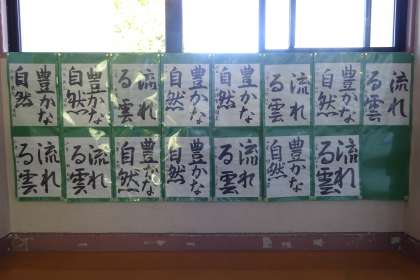 豊かな
自然
豊かな
自然
流れ
る雲
豊かな
自然
豊かな
自然
流れ
る雲
豊かな
自然
流れ
る雲
流れ
る雲
流れ
る雲
豊かな
自然
豊かな
自然
流れ
る雲
豊かな
自然
流れ
る雲